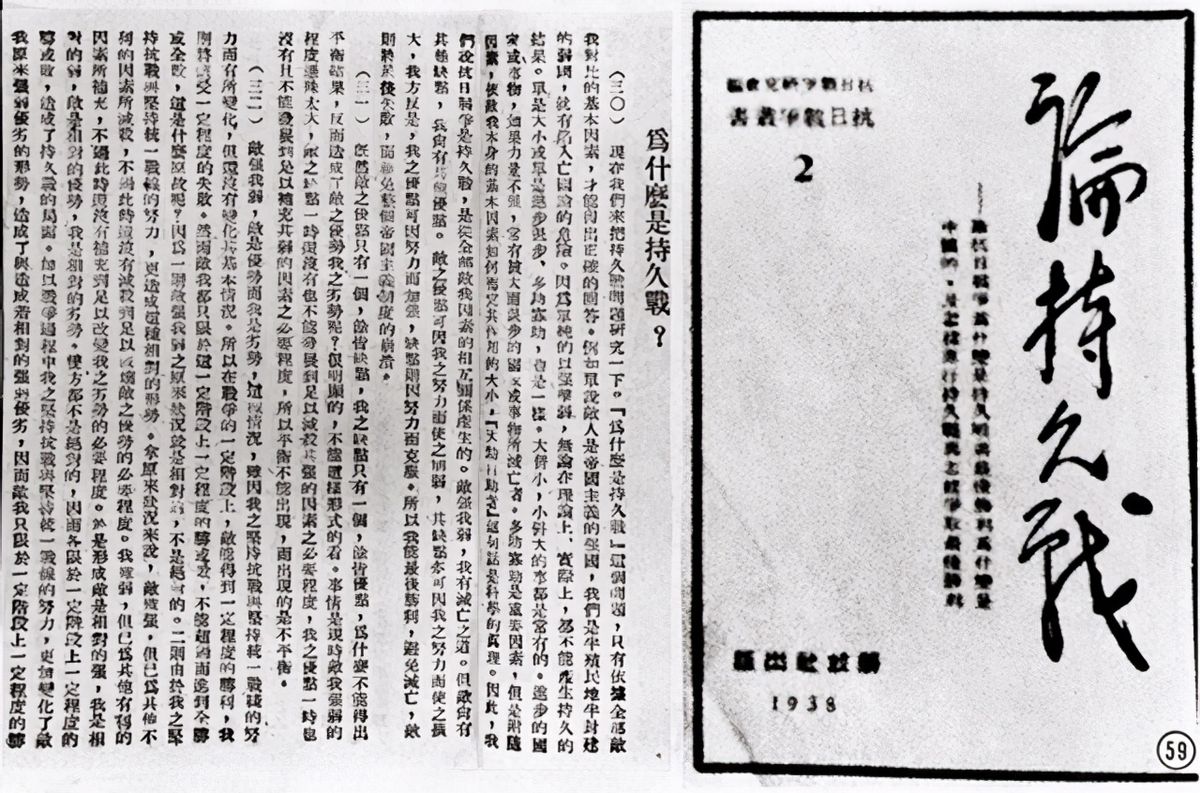 論持久戰
——論抗日戰爭爲什麼是持久戰與最後勝利爲什麼是
中國的，及怎樣進行持久戰與怎樣爭取最後勝利
抗日戰爭研究會編
抗日戰爭叢書
2
解放社出版
1938
59
爲什麼是持久戰？
（三〇） 現在我們來把持久戰問題研究一下。『爲什麼是持久戰』這個問題，只有依據全部敵
我對比的基本因素，才能得出正確的回答。例如單說敵人是帝國主義的强國，我們是半殖民地半封建
的弱國，就有陷入亡國論的危險。因爲單純的以强擊弱，無論在理論上、實際上，都不能產生持久的
結果。單是大小或單是進步退步、多助寡助，也是一樣。大併小，小併大的事都是常有的。進步的國
家或事物，如果力量不强，常有被大而退步的國家或事物所滅亡者。多助寡助是重要因素，但是附隨
因素，依敵我本身的基本因素如何而定其作用的大小。『天助自助者』這句話是科學的真理。因此，我
們說抗日戰爭是持久戰，是從全部敵我因素的相互關係產生的。敵强我弱，我有滅亡之道。但敵尙有
其他缺點，我尙有其他優點。敵之優點可因我之努力而使之削弱，其缺點亦可因我之努力而使之擴
大，我方反是，我之優點可因努力而加强，缺點則因努力而克服。所以我能最後勝利，避免滅亡，敵
則將最後失敗，而不能避免整個帝國主義制度的崩潰。
（三一） 既然敵之優點只有一個，餘皆缺點，我之缺點只有一個，餘皆優點，爲什麼不能得出
平衡結果，反而造成了敵之優勢我之劣勢呢？很明顯的，不能這樣形式的看。事情是現時敵我强弱的
程度懸殊太大，敵之缺點一時還沒有也不能發展到足以減殺其强的因素之必要程度，我之優點一時也
沒有且不能發展到足以補充其弱的因素之必要程度，所以平衡不能出現，而出現的是不平衡。
（三二） 敵强我弱，敵是優勢而我是劣勢，這種情況，雖因我之堅持抗戰與堅持統一戰綫的努
力而有所變化，但還沒有變化其基本情況。所以在戰爭的一定階段上，敵能得到一定程度的勝利，我
則將遭受一定程度的失敗。然而敵我都只限於這一定階段上一定程度的勝或敗，不能超過而進到全勝
或全敗，這是什麼原故呢？因爲一則敵强我弱之原來狀況就是相對的，不是絕對的。二則由於我之堅
持抗戰與堅持統一戰綫的努力，更造成這種相對的形勢。拿原來狀況來說，敵雖强，但已爲其他不
利的因素所減殺，不過此時還沒有減殺到足以破壞敵之優勢的必要程度。我雖弱，但已爲其他有利的
因素所補充，不過此時還沒有補充到足以改變我之劣勢的必要程度。於是形成敵是相對的强，我是相
對的弱，敵是相對的優勢，我是相對的劣勢。雙方都不是絕對的，因而各限於一定階段上一定程度的
勝或敗，造成了持久戰的局面。加以戰爭過程中我之堅持抗戰與堅持統一戰綫的努力，更加變化了敵
我原來强弱優劣的形勢，造成了與造成着相對的强弱優劣，因而敵我只限於一定階段上一定程度的勝